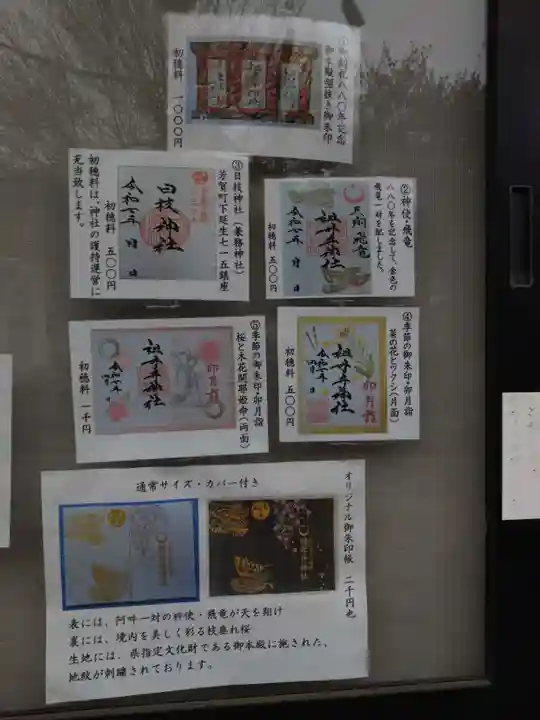 ①御創祀八八〇年記念
御本殿型抜き御朱印
初穂料 一〇〇〇円
②神使・飛竜
八八〇年を記念して、金色の
飛竜一対を配しました。
初穂料 五〇〇円
天翔飛竜
祖母井神社
令和七年 月 日
③日枝神社(兼務神社)
芳賀町下延生七一五鎮座
初穂料 五〇〇円
初穂料は、神社の護持運営に
充当致します。
日枝神社
令和七年 月 日
④季節の御朱印・卯月詣
菜の花とツクシ(片面)
初穂料 五〇〇円
卯月詣
祖母井神社
令和七年
四月 日
⑤季節の御朱印・卯月詣
桜と木花開耶姫命(両面)
初穂料 一千円
卯月詣
祖母井神社
令和七年
四月 日
オリジナル御朱印帳 二千円也
通常サイズ・カバー付き
表には、阿吽一対の神使・飛竜が天を翔け
裏には、境内を美しく彩る枝垂れ桜
生地には、県指定文化財である御本殿に施された、
地紋が刺繍されております。